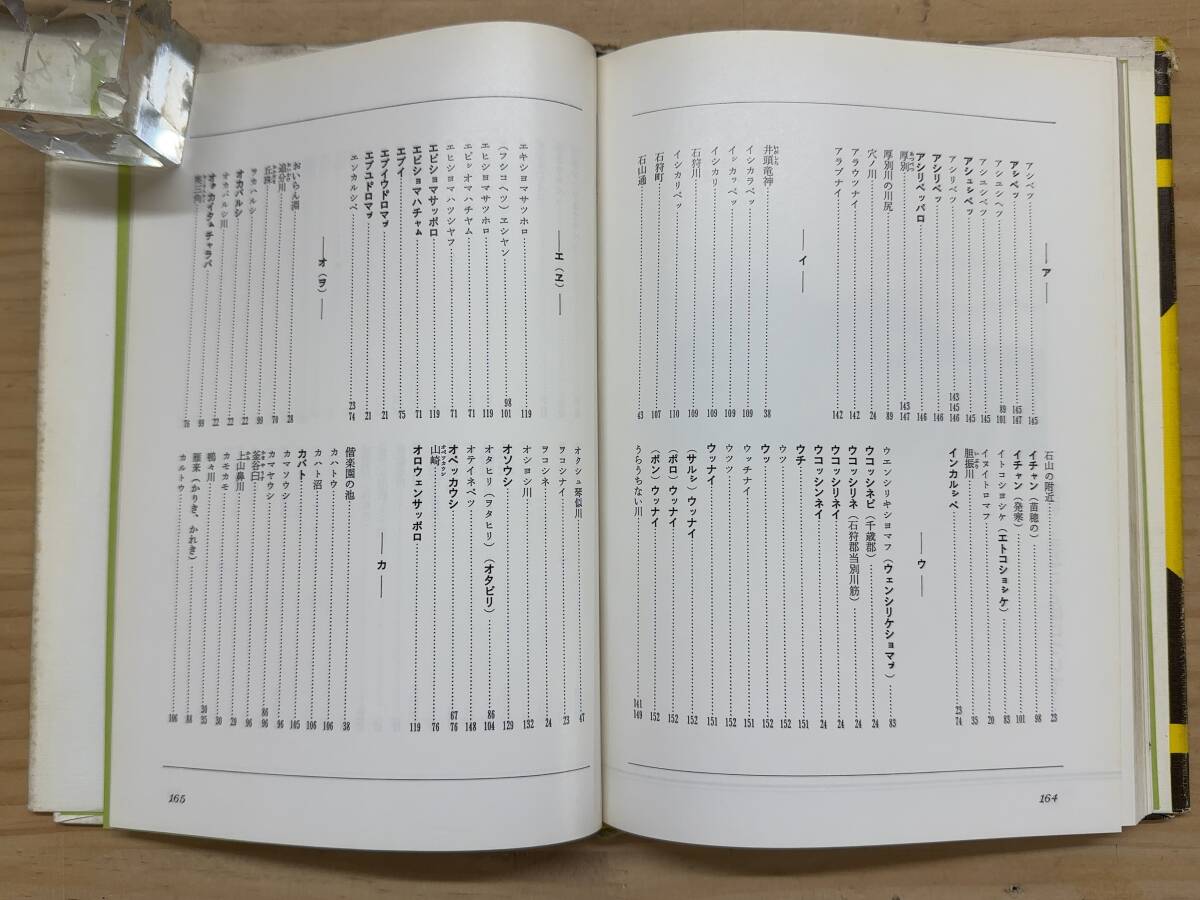 ― ア ―
アシベツ 145
アシベッ 145 147
アシエシヘツ 89 101
アシユシベツ 145
アシュシベッ 145
アシリベツ 143 145 146
アシリベッ 146
アシリベッパロ 146
厚別 あつべつ 143 147
厚別川の川尻 89
穴ノ川 24
アラウツナイ 142
アラプナイ 142
― イ ―
井頭竜神 38
イシカラベツ 109
イシカッペッ 109
イシカリ 109
石狩川 109
イシカリベツ 110
石狩町 107
石山通 43
石山の附近 23
イチャン(苗穂の) 98
イチャン(発寒) 101
イトコシヨシケ(エトコショㇱケ) 83
イヌイトロマフ 20
胆振川 35
インカルㇱペ 23 74
― ウ ―
ウエンシリキシヨマフ(ウェンシリケショマㇷ゚) 83
ウコッシネピ(千歳郡) 24
ウコッシリネ(石狩郡当別川筋) 24
ウコッシリネイ 24
ウコッシンネイ 24
ウチ 151
ウツ 152
ウッ 152
ウツツ 152
ウッチナイ 151
ウッナイ 151
(サルㇱ)ウッナイ 152
(ポロ)ウッナイ 152
(ポン)ウッナイ 152
うらうちない川 141 149
164
エキショマサツホロ 119
(フシコヘツ)エシヤン 98 101
エヒショマサツホロ 119
エピッオマハチヤム 71
エヒショマハツシヤフ 71
エピショマサッポロ 119
エピショマハチャㇺ 71
エプイ 75
エプイウドロマㇷ゚ 21
エプユドロマㇷ゚ 21
エンカルシベ 23 74
― オ(ヲ) ―
おいらん淵 28
追分川 70
丘珠 99
ヲカハルシ 22
オカバルシ 22
オカバルシ川 22
オㇰカイタㇺチャラパ 99
76
オクシュ琴似川 47
ヲコシナイ 23
ヲコシネ 24
オショシ川 132
オソウシ 129
オタヒリ(ヲタヒリ)(オタピリ) 86 104
オテイネベツ 148
オペッカウシ 67 76
山崎 オペツカウシ 76
オロウェンサッポロ 119
― カ ―
偕楽園の池 38
カハト沼 106
カハトウ 106
カバト 105
カマソウシ 96
カマヤウシ 96
釜谷臼 かまやうす 86 96
上山鼻川 29
カモカモ 30
鴨々川 30 35
雁来(かりき、かれき) 88
カルトウ 106
165